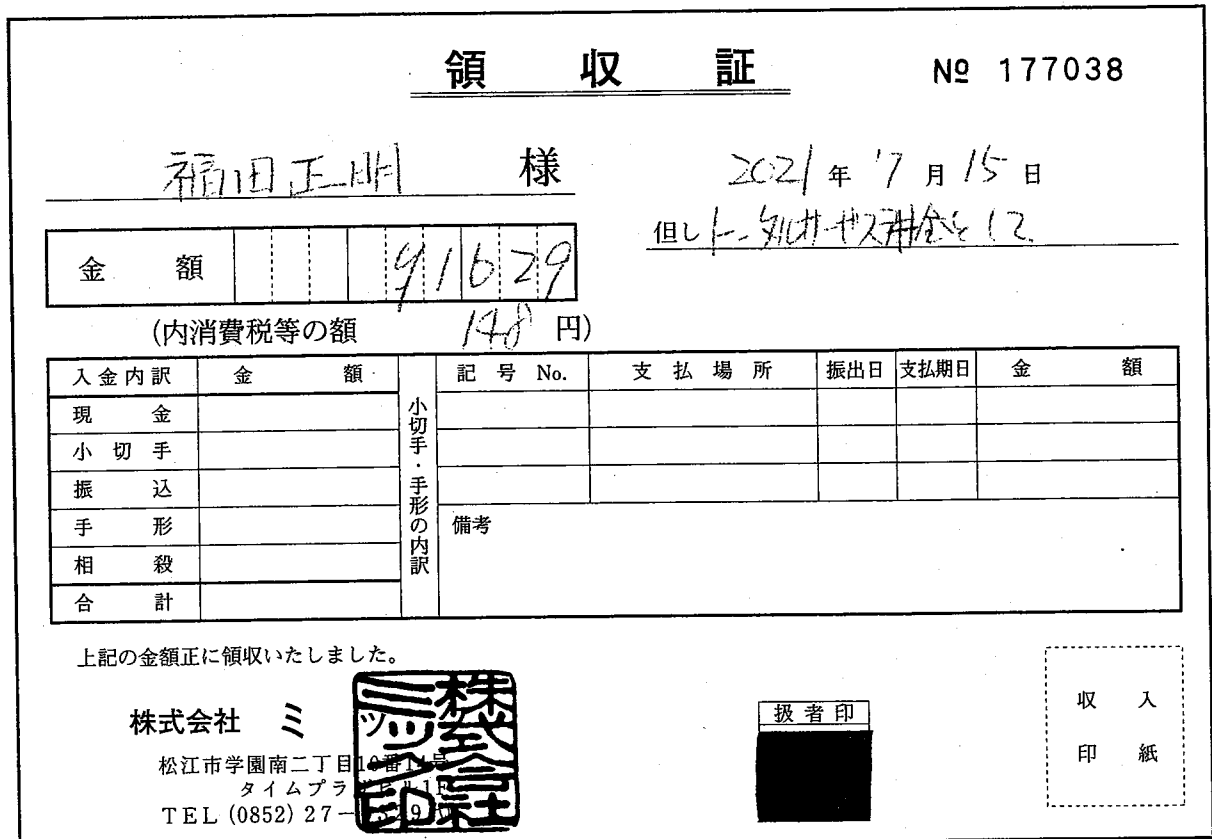 領収証
№ 177038
福田正明 様
2021年7月15日
但しトータルサービス料金として
金額 91629
(内消費税等の額 148 円)
入金内訳 金額
現金
小切手
振込
手形
相殺
合計
小切手・手形の内訳
記号No. 支払場所 振出日 支払期日 金額
備考
上記の金額正に領収いたしました。
株式会社 ミツ
松江市学園南二丁目10番14号
タイムプラザビル1F
TEL (0852) 27-
扱者印
収入
印紙